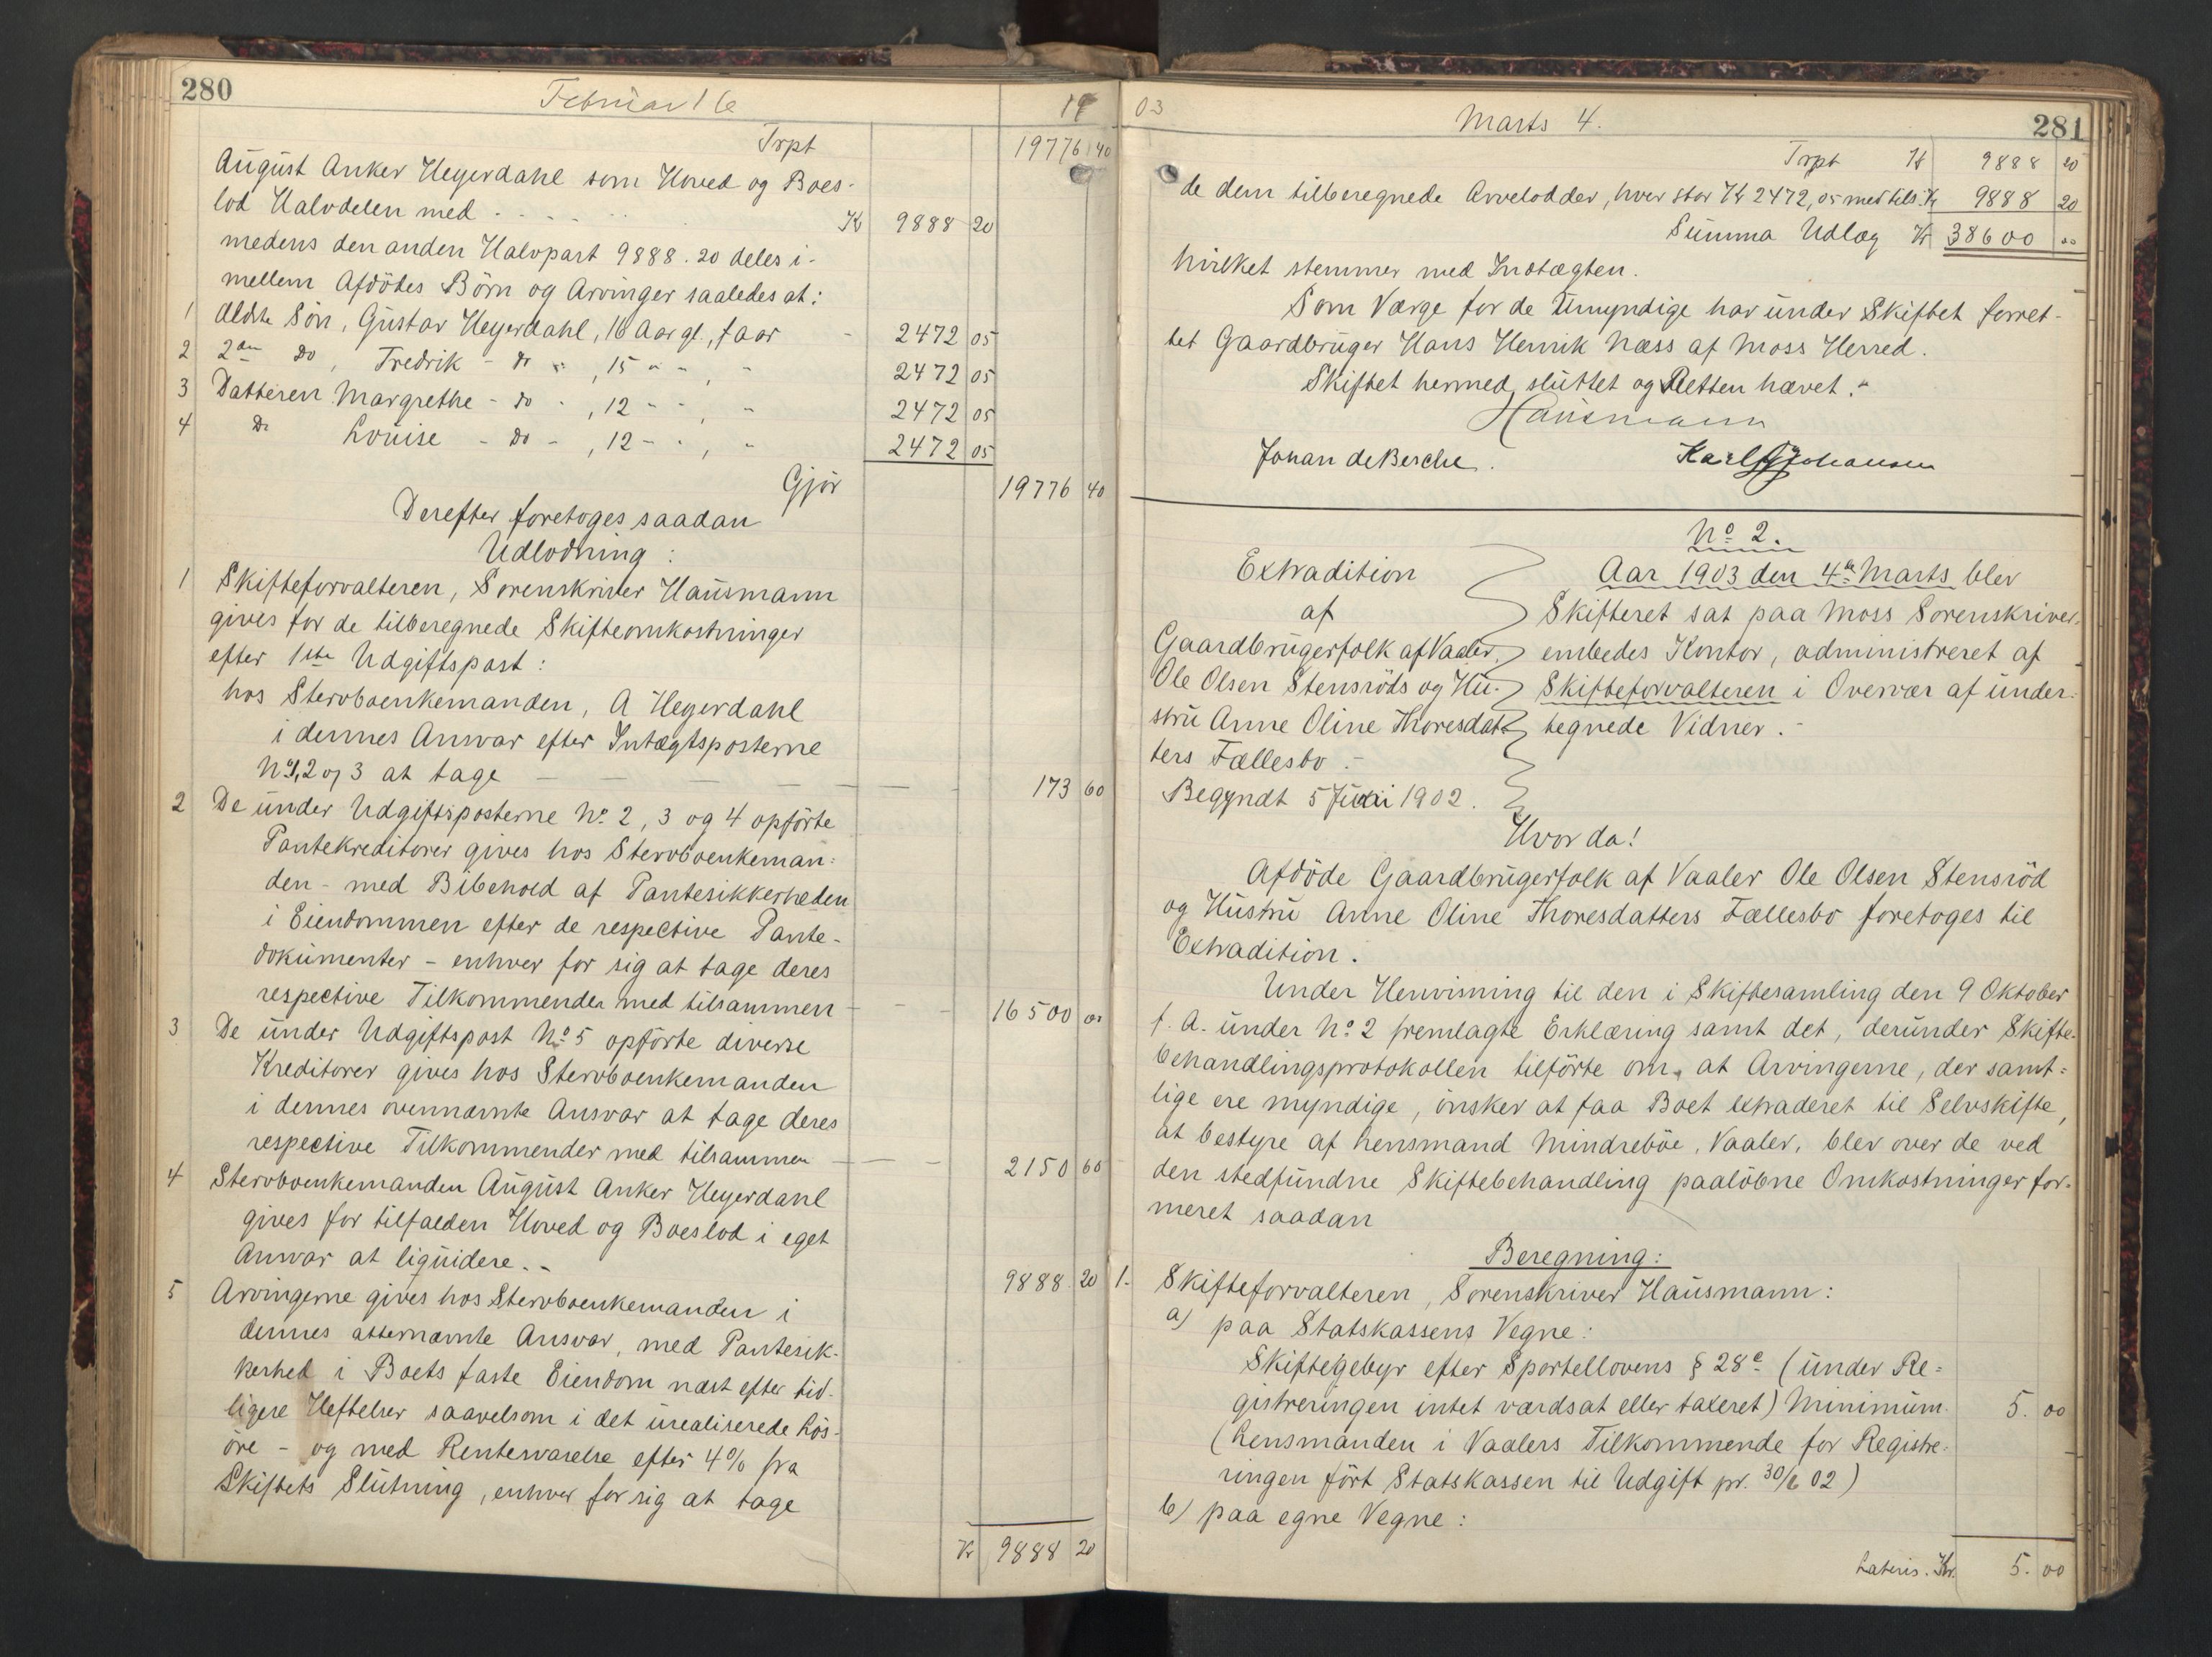 280
Februar 16
19
Trpt 19776 40
August Anker Heyerdahl som Hoved og Boes-
lod Halvdelen med . . . . . Kr 9888 20
medens den anden Halvpart 9888.20 deles i-
mellem Afdödes Börn og Arvinger saaledes at:
1 Ældste Sön, Gustav Heyerdahl, 16 Aar gl., faar - 2472 05
2 2den Do, Fredrik - do - , 15 - - , - 2472 05
3 Datteren Margrethe - do - , 12 - - , - 2472 05
4 Do Louise - do - , 12 - - , - 2472 05
Gjör 19776 40
Derefter foretoges saadan
Udlodning:
1 Skifteforvalteren, Sorenskriver Hausmann
gives for de tilberegnede Skifteomkostninger
efter 1ste Udgiftspost:
hos Stervboenkemanden, A Heyerdahl
i dennes Ansvar efter Indtægtsposterne
No 1, 2 og 3 at tage - - - - - 173 60
2 De under Udgiftsposterne No 2, 3 og 4 opförte
Pantekreditorer gives hos Stervboenkeman=
den - med Bibehold af Pantesikkerheden
i Eiendommen efter de respective Pante-
dokumenter - enhver for sig at tage deres
respective Tilkommende med tilsammen - - - 16500 00
3 De under Udgiftspost No 5 opförte diverse
Kreditorer gives hos Stervboenkemanden
i dennes ovennævnte Ansvar at tage deres
respective Tilkommender med tilsammen - - - 2150 60
4 Stervboenkemanden August Anker Heyerdahl
gives for tilfalden Hoved og Boeslod i eget
Ansvar at liquidere. - 9888 20
5 Arvingerne gives hos Stervboenkemanden i
dennes atternævnte Ansvar, med Pantesik-
kerhed i Boets faste Eiendom næst efter tid-
ligere Heftelser saavelsom i det urealiserede Lös-
öre - og med Rentesvarelse efter 4% fra
Skiftets Slutning, enhver for sig at tage
Kr 9888 20
03
Marts 4.
281
Trpt Kr 9888 20
de dem tilberegnede Arvelodder, hver stor Kr 2472,05 med tils. Kr 9888 20
Summa Udlæg Kr 38600 00
hvilket stemmer med Indtægten.
Som Værge for de Umyndige har under Skiftet forret-
tet Gaardbruger Hans Henrik Næss af Moss Herred.
Skiftet hermed sluttet og Retten hævet. -
Hausmann
Johan deBesche. Karl Johansen
No 2.
Extradition
af
Gaardbrugerfolk af Vaaler,
Ole Olsen Stensröds og Hu-
stru Anne Oline Thoresdat-
ters Fællesbo. -
Begyndt 5 Juni 1902.
Aar 1903 den 4de Marts blev
Skifteret sat paa Moss Sorenskriver-
embedes Kontor, administreret af
Skifteforvalteren i Overvær af under-
tegnede Vidner. -
Hvor da!
Afdöde Gaardbrugerfolk af Vaaler Ole Olsen Stensröd
og Hustru Anne Oline Thoresdatters Fællesbo foretoges til
Extradition.
Under Henvisning til den i Skiftesamling den 9 Oktober
f. A. under No 2 fremlagte Erklæring samt det, derunder Skifte-
behandlingsprotokollen tilförte om, at Arvingerne, der samt=
lige ere myndige, önsker at faa Boet extraderet til Selvskifte,
at bestyre af Lensmand Mindreböe, Vaaler, blev over de ved
den stedfundne Skiftebehandling paalöbne Omkostninger for-
meret saadan
Beregning:
1. Skifteforvalteren, Sorenskriver Hausmann:
a) paa Statskassens Vegne:
Skiftegebyr efter Sportellovens § 28c (under Re=
gistreringen intet værdsat eller taxeret) Minimum. 5. 00
(Lensmanden i Vaalers Tilkommende for Registre-
ringen fört Statskassen til Udgift pr. 30/6 02)
b) paa egne Vegne:
Lateris. Kr. 5. 00